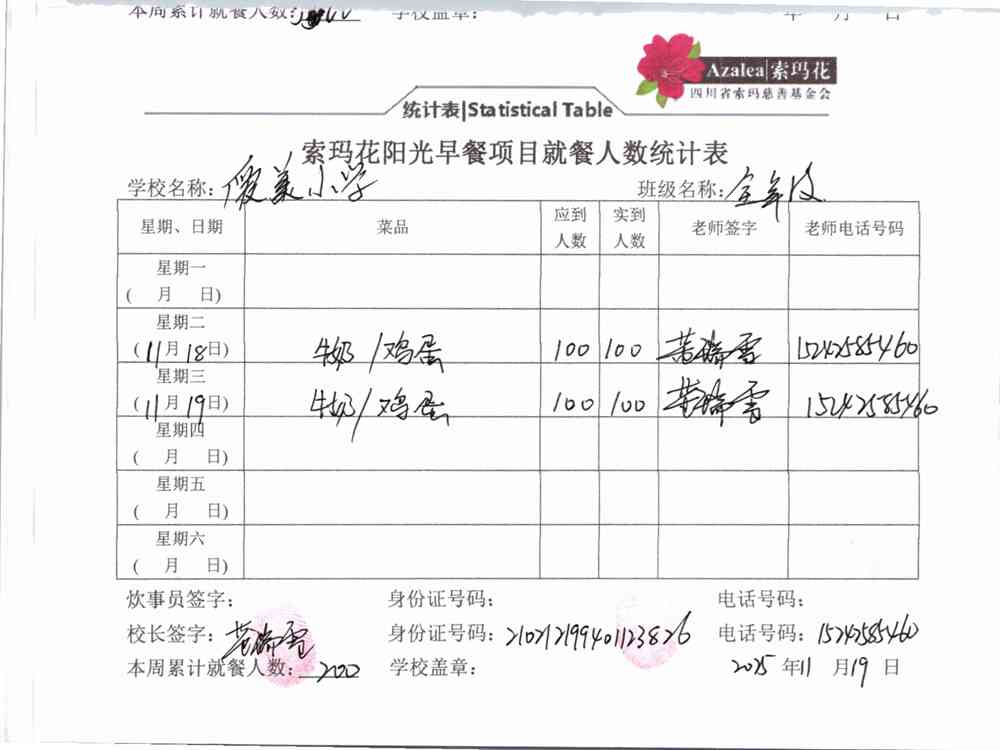 本周累计就餐人数: 学校盖章: 年 月 日
Azalea|索玛花
四川省索玛慈善基金会
统计表|Statistical Table
索玛花阳光早餐项目就餐人数统计表
学校名称: 爱美小学 班级名称: 全年级
星期、日期 菜品 应到人数 实到人数 老师签字 老师电话号码
星期一
( 月 日)
星期二
(11月18日) 牛奶/鸡蛋 100 100 15242585460
星期三
(11月19日) 牛奶/鸡蛋 100 100 15242585460
星期四
( 月 日)
星期五
( 月 日)
星期六
( 月 日)
炊事员签字: 身份证号码: 电话号码:
校长签字: 身份证号码: 210212199401123826 电话号码: 15242585460
本周累计就餐人数: 200 学校盖章: 2025年11月19日